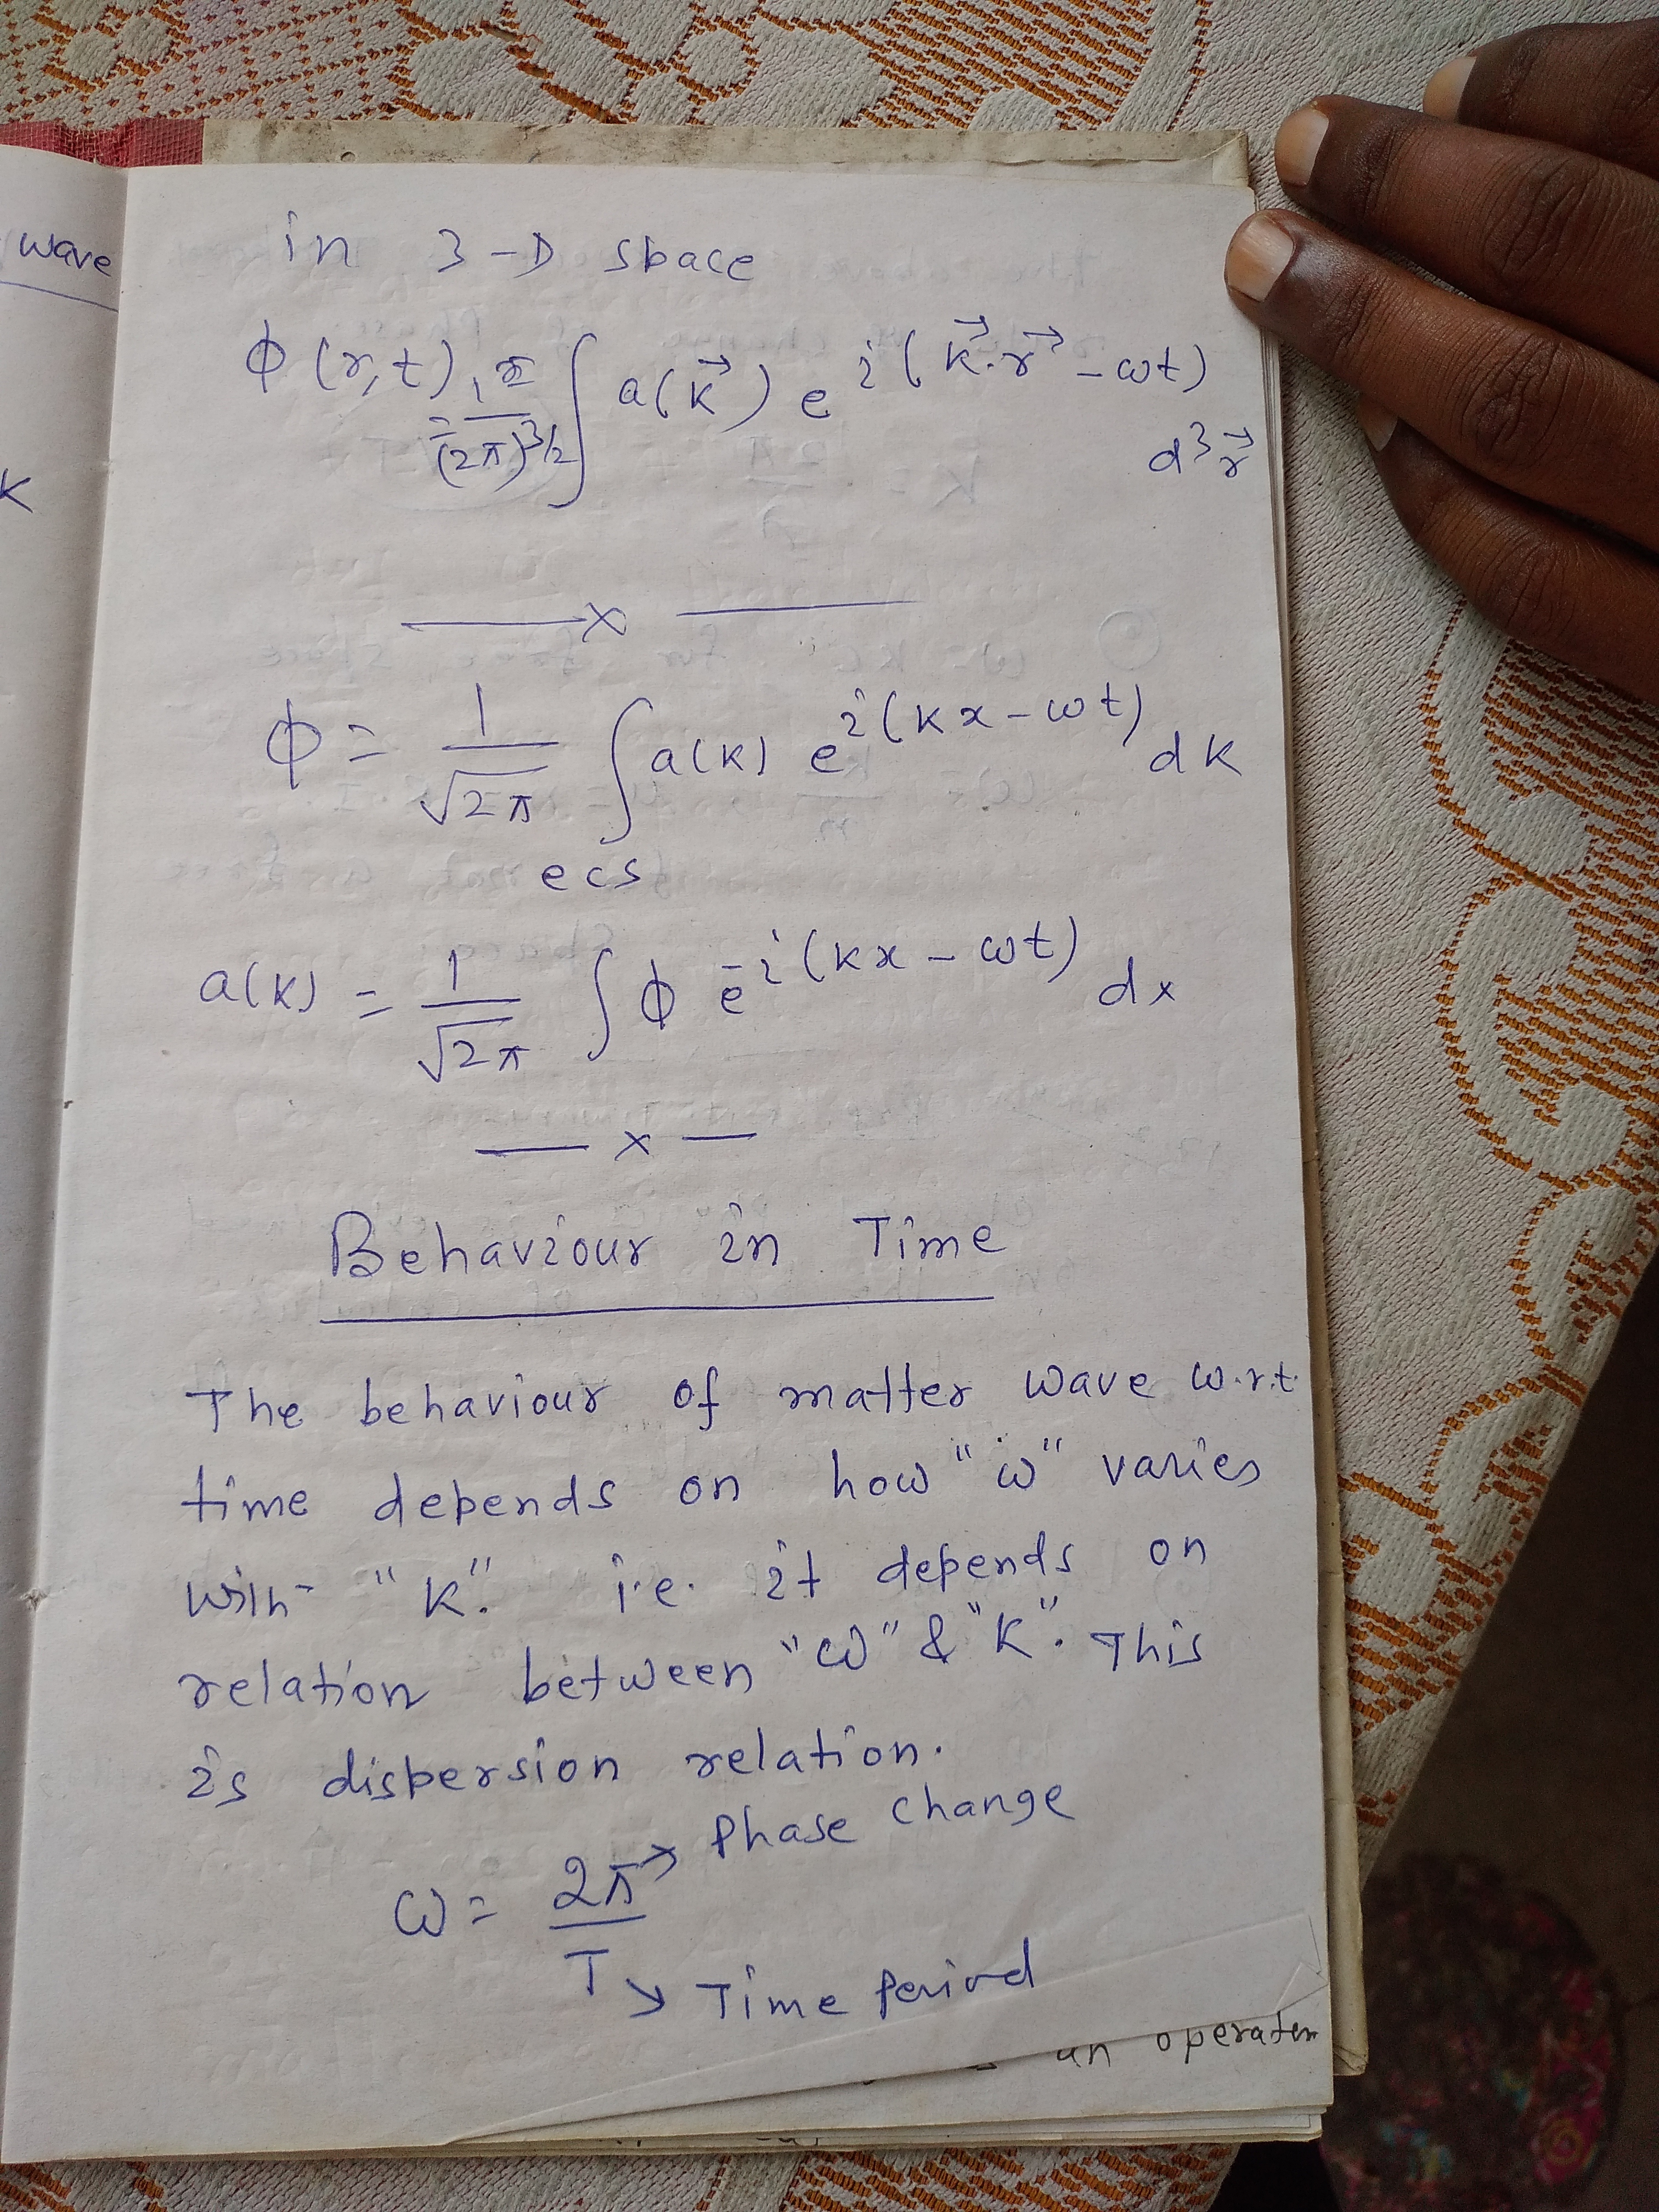 wave
K
in 3-D space
ϕ(r,t) = 1/(2π)^3/2 ∫ a(k⃗) e^i(k⃗.r⃗ - ωt) d^3 r⃗
—— x ——
ϕ = 1/√2π ∫ a(k) e^i(kx - ωt) dk
ecs
a(k) = 1/√2π ∫ ϕ e^-i(kx - ωt) dx
— x —
Behaviour in Time
The behaviour of matter wave w.r.t.
time depends on how "ω" varies
with "K". i.e. it depends on
relation between "ω" & "K". This
is dispersion relation.
ω = 2π/T
→ Phase change
→ Time Period
an operator